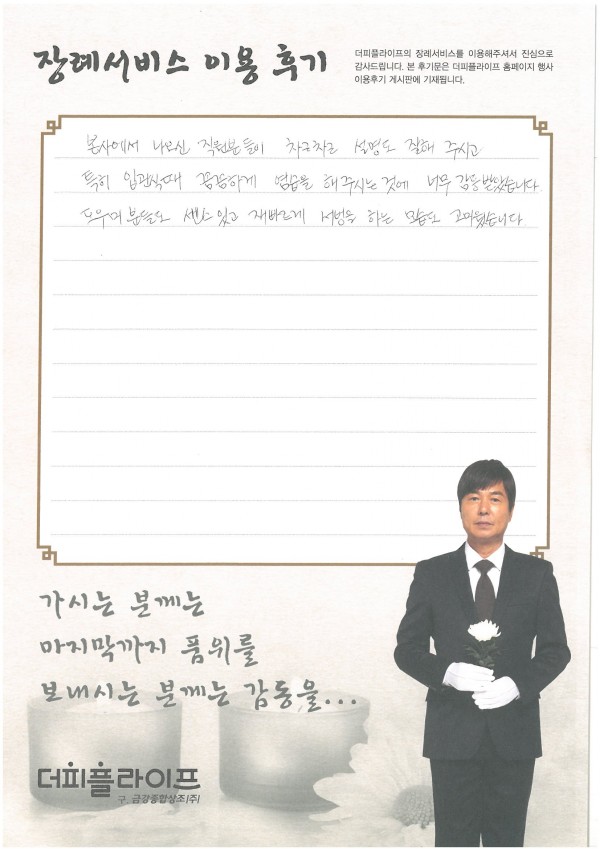 장례서비스 이용 후기
더피플라이프의 장례서비스를 이용해주셔서 진심으로
감사드립니다. 본 후기문은 더피플라이프 홈페이지 행사
이용후기 게시판에 기재됩니다.
본사에서 나오신 직원분들이 차근차근 설명도 잘해 주시고
특히 입관식때 꼼꼼하게 염습을 해주시는 것에 너무 감동받았습니다.
도우미 분들도 센스있고 재빠르게 서빙을 하는 모습도 고마웠습니다.
가시는 분께는
마지막까지 품위를
보내시는 분께는 감동을...
더피플라이프
구. 금강종합상조(주)